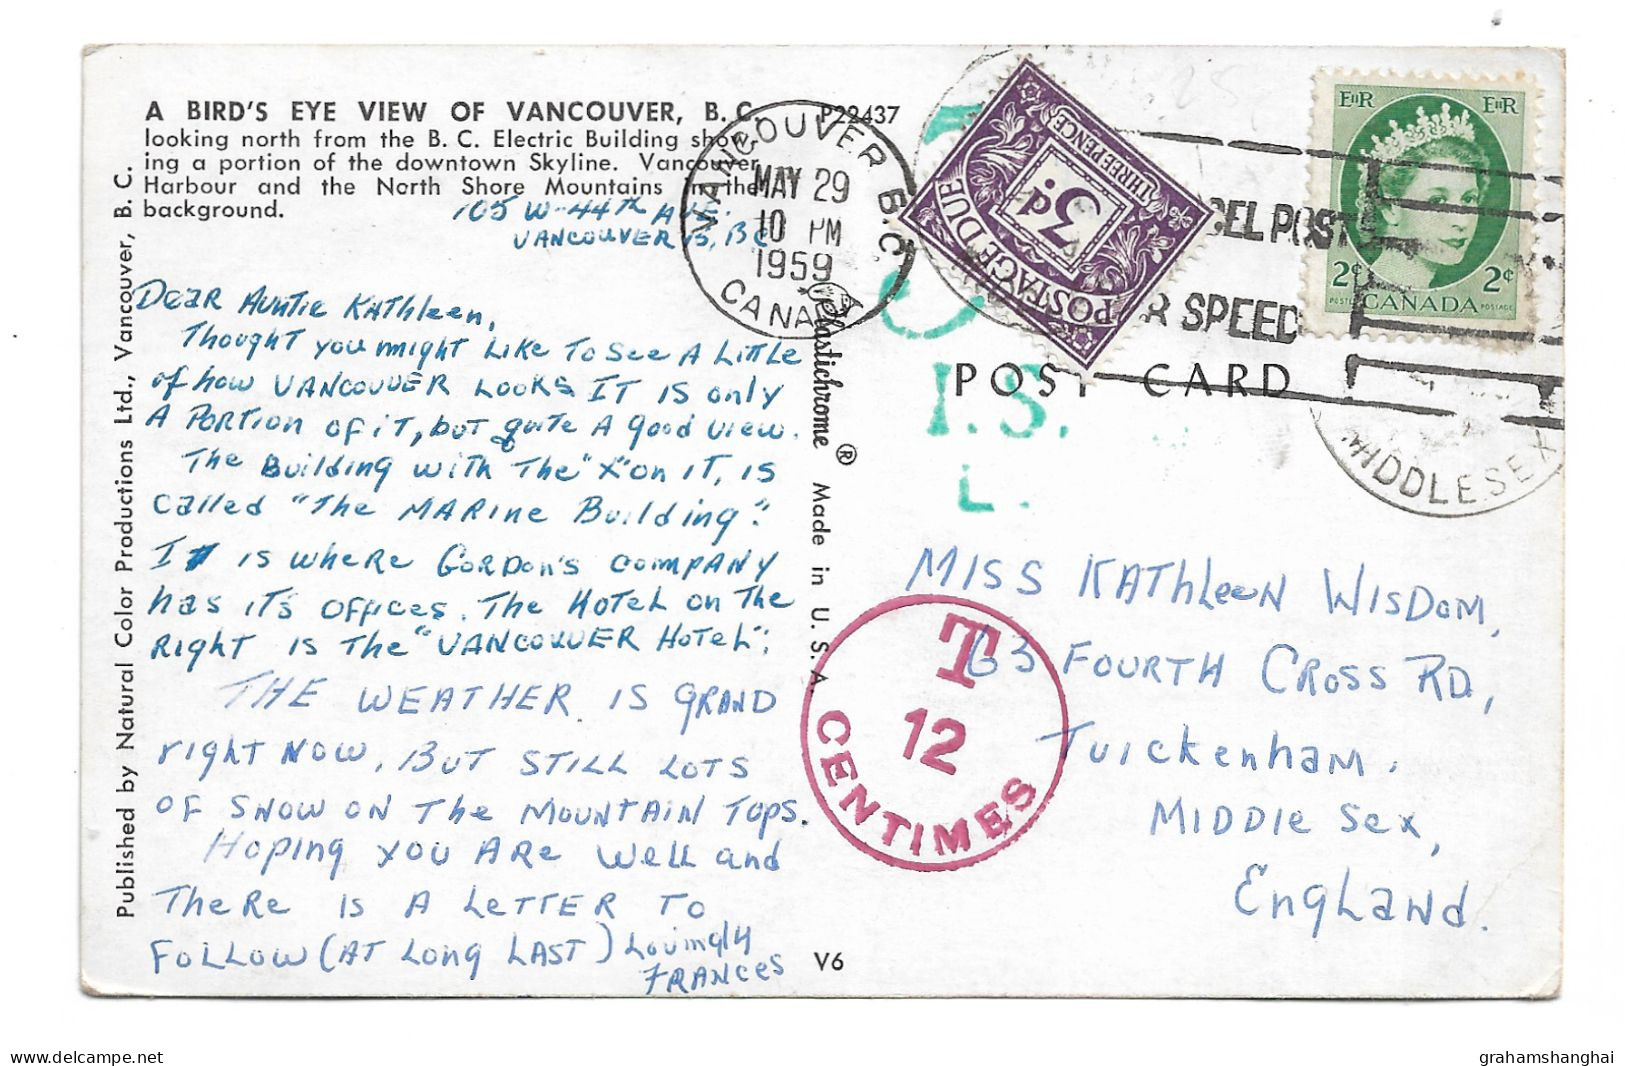 A BIRD'S EYE VIEW OF VANCOUVER, B. C.
looking north from the B. C. Electric Building show-
ing a portion of the downtown Skyline. Vancouver
Harbour and the North Shore Mountains in the
background.
P22437
105 W-44th AVE.
VANCOUVER 15, BC
Dear Auntie Kathleen,
Thought you might like to see a little
of how VANCOUVER looks It is only
a portion of it, but quite a good view.
The Building with the "X" on it, is
called "The MARINE Building".
It is where Gordon's company
has it's offices. The Hotel on the
right is the "VANCOUVER Hotel".
THE WEATHER IS GRAND
right now, But still lots
of snow on the mountain tops.
Hoping you are well and
there is a letter to
follow (at long last) Lovingly
FRANCES
Published by Natural Color Productions Ltd., Vancouver, B. C.
Plastichrome ® Made in U. S. A.
V6
VANCOUVER B.C.
MAY 29
10 PM
1959
CANADA
POSTAGE DUE
3d.
THREEPENCE
POSTAGE
CEL POST
R SPEED
EIIR EIIR
2¢ 2¢
POSTES CANADA POSTAGE
MIDDLESEX
POST CARD
I.S.
L.
T
12
CENTIMES
MISS KATHLEEN WISDOM,
63 FOURTH CROSS RD,
Tuickenham.
MIDDLE SEX,
England.
delcampe.net
grahamshanghai